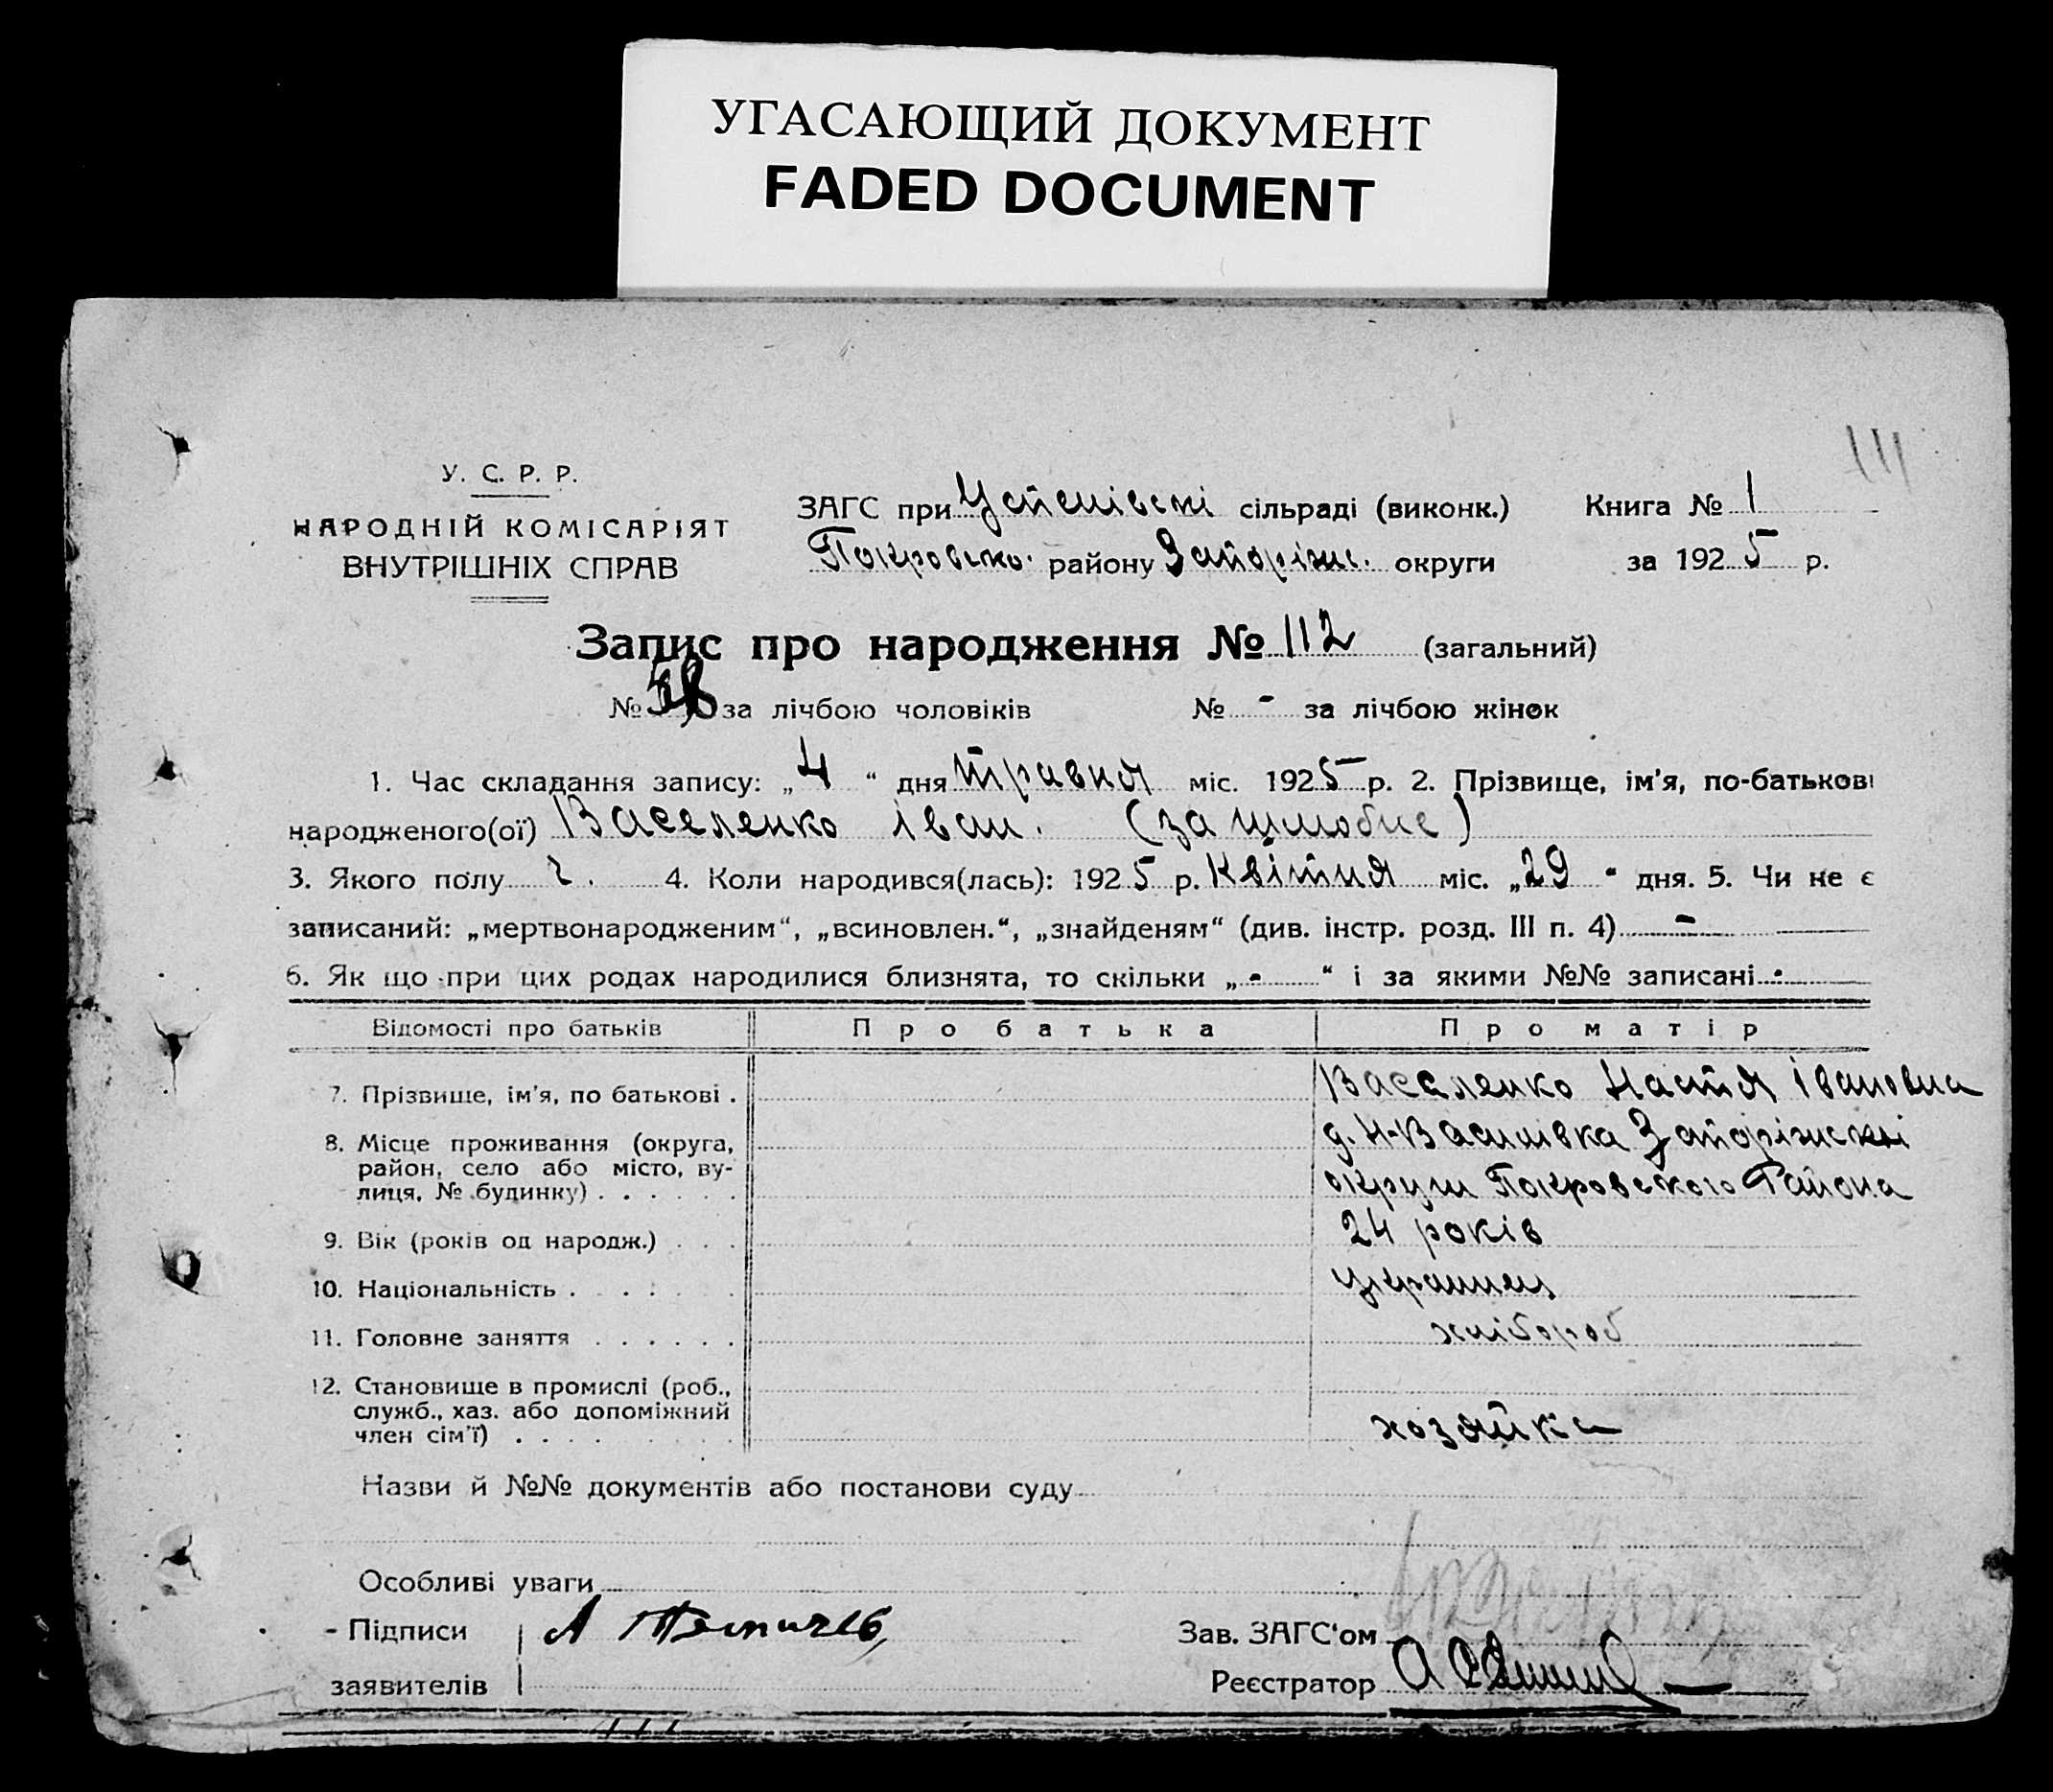 УГАСАЮЩИЙ ДОКУМЕНТ
FADED DOCUMENT
111
У. С. Р. Р.
НАРОДНІЙ КОМІСАРІЯТ
ВНУТРІШНІХ СПРАВ
ЗАГС при Успенівскі сільраді (виконк.)
Покровсько. району Запоріжс. округи
Книга № 1
за 1925 р.
Запис про народження № 112 (загальний)
№ 58 за лічбою чоловіків № - за лічбою жінок
1. Час складання запису: „4“ дня травня міс. 1925 р. 2. Прізвище, ім'я, по-батькові
народженого(ої) Васеленко Іван. (за
3. Якого полу ч. 4. Коли народився(лась): 1925 р. Квітня міс. „29“ дня. 5. Чи не є
записаний: „мертвонародженим“, „всиновлен.“, „знайденям“ (див. інстр. розд. III п. 4) -
6. Як що при цих родах народилися близнята, то скільки „-“ і за якими №№ записані -
Відомості про батьків Про батька Про матір
7. Прізвище, ім'я, по батькові . Васеленко Настя Івановна
8. Місце проживання (округа, д. Н-Василівка Запоріжскі
район, село або місто, ву-
лиця, № будинку) . . . . . . округи Покровского Района
9. Вік (років од народж.) . . . 24 років
10. Національність . . . . . украинец
11. Головне заняття . . . . . . хлібороб
12. Становище в промислі (роб.,
служб., хаз. або допоміжний
член сім'ї) . . . . хозяйка
Назви й №№ документів або постанови суду
Особливі уваги
Підписи А
заявителів
Зав. ЗАГС'ом
Реєстратор